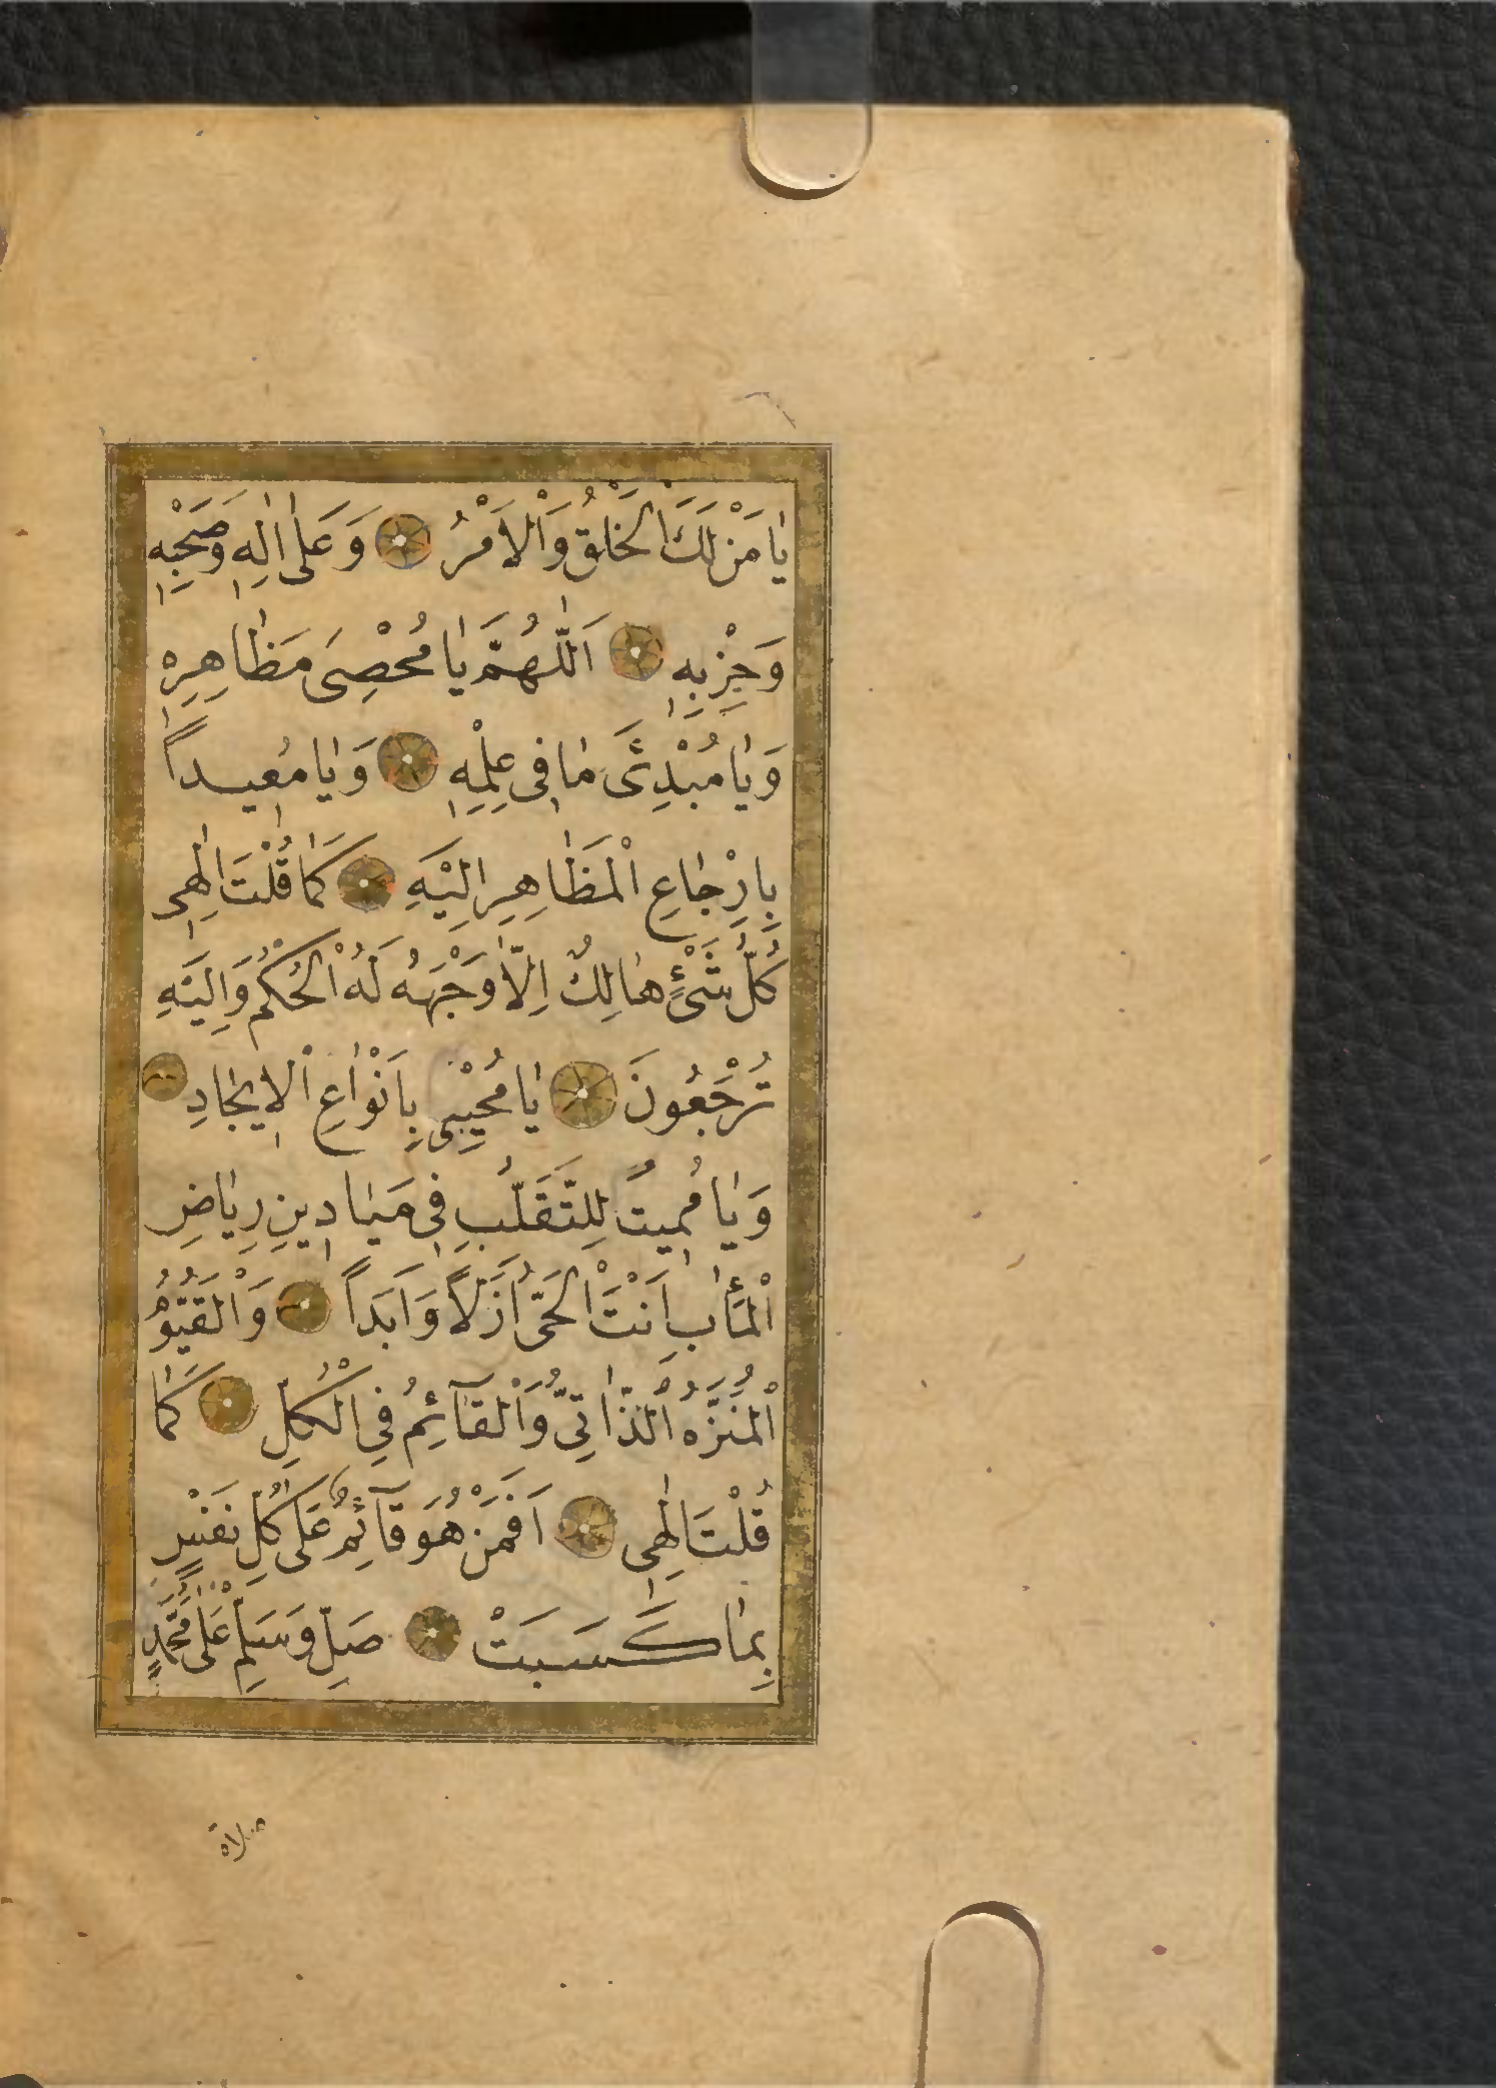 يَا مَنْ لَكَ الْخَلْقُ وَالْاَمْرُ وَعَلٰى اٰلِهٖ وَصَحْبِهٖ
وَحِزْبِهٖ اَللّٰهُمَّ يَا مُحْصِىَ مَظَاهِرِهٖ
وَيَا مُبْدِئَ مَا فِى عِلْمِهٖ وَيَا مُعِيداً
بِاِرْجَاعِ الْمَظَاهِرِ اِلَيْهِ كَمَا قُلْتَ اِلٰهِى
كُلُّ شَىْءٍ هَالِكٌ اِلَّا وَجْهَهُ لَهُ الْحُكْمُ وَاِلَيْهِ
تُرْجَعُونَ يَا مُحْيِى بِاَنْوَاعِ الْاِيجَادِ
وَيَا مُمِيتُ لِلتَّقَلُّبِ فِى مَيَادِينِ رِيَاضِ
الْمَئَابِ اَنْتَ الْحَىُّ اَزَلاً وَاَبَداً وَالْقَيُّومُ
الْمُنَزَّهُ الذَّاتِىُّ وَالْقَآئِمُ فِى الْكُلِّ كَمَا
قُلْتَ اِلٰهِى اَفَمَنْ هُوَ قَآئِمٌ عَلٰى كُلِّ نَفْسٍ
بِمَا كَسَبَتْ صَلِّ وَسَلِّمْ عَلٰى مُحَمَّدٍ
صلاة